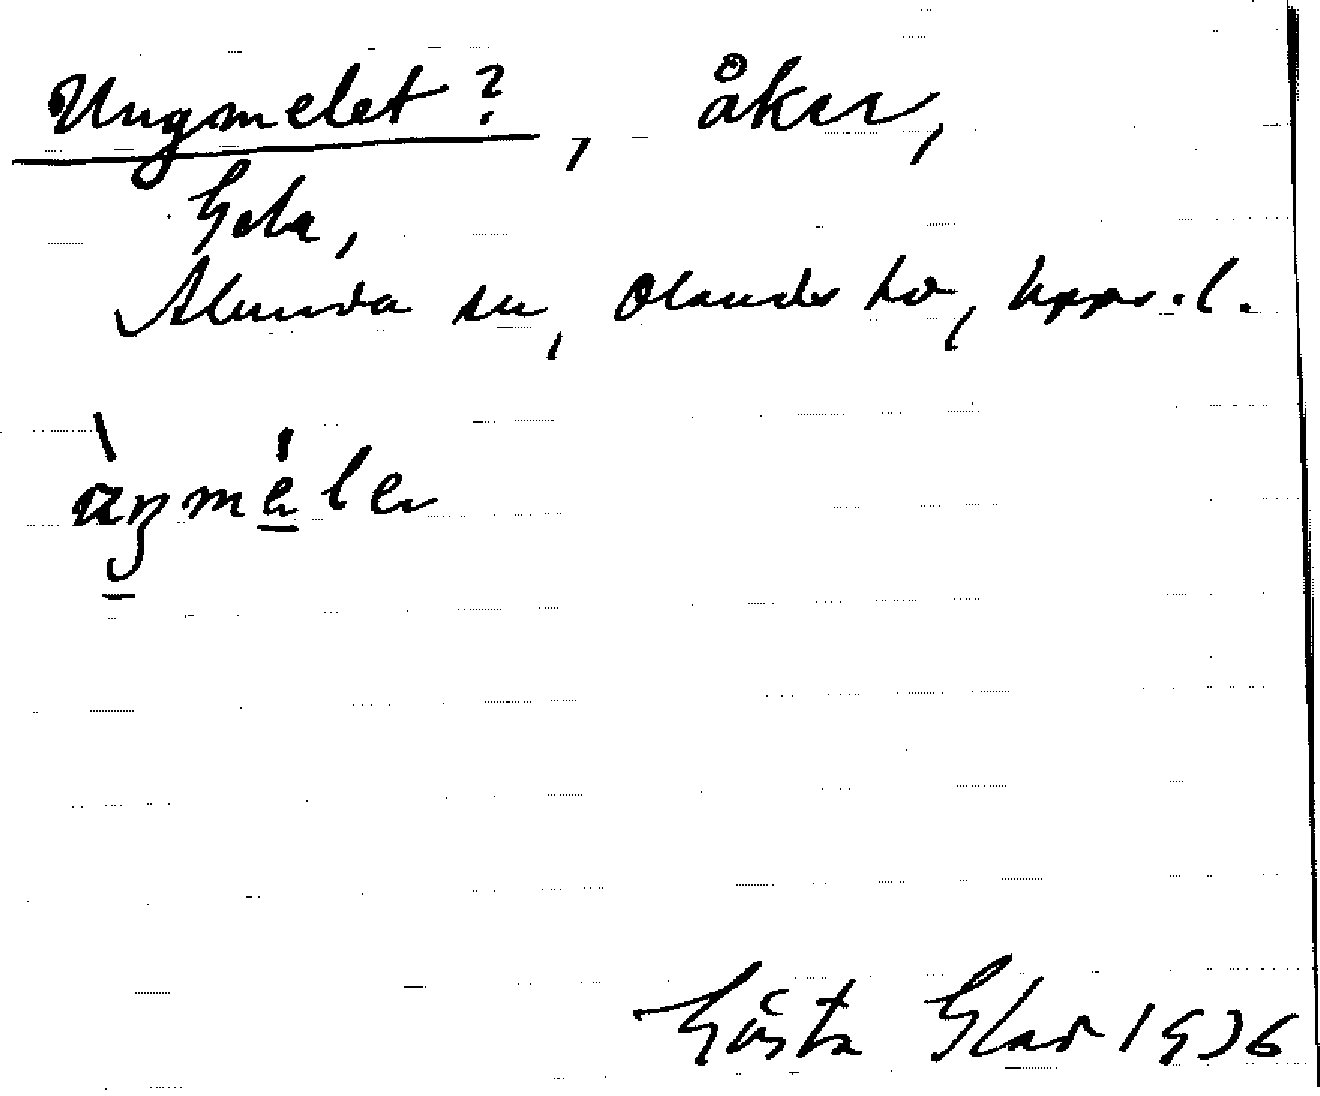 Ungmelet?, åker,
Gela,
Alunda sn, Olands hd, Upps. l.
Gösta Glad 1936